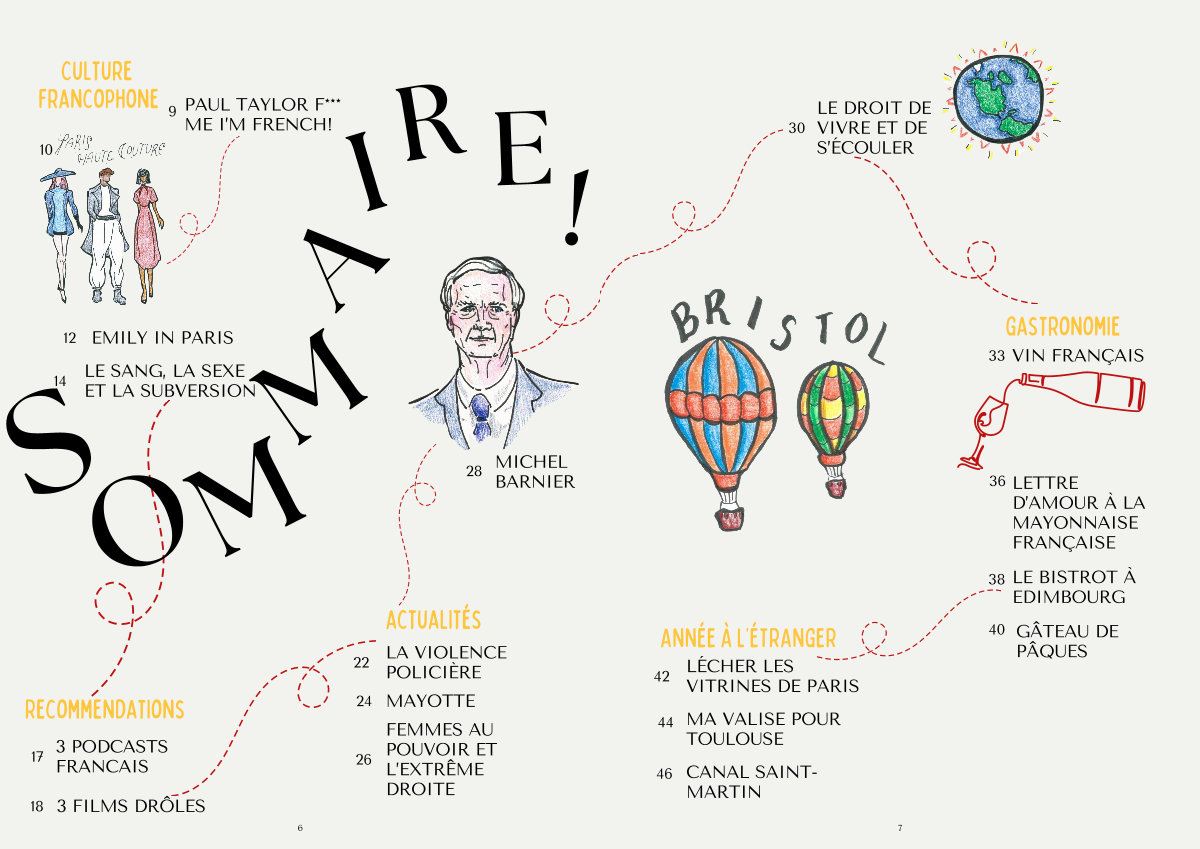 SOMMAIRE!
CULTURE
FRANCOPHONE
9 PAUL TAYLOR F***
ME I'M FRENCH!
10 PARIS
HAUTE COUTURE
12 EMILY IN PARIS
14 LE SANG, LA SEXE
ET LA SUBVERSION
RECOMMENDATIONS
17 3 PODCASTS
FRANCAIS
18 3 FILMS DRÔLES
ACTUALITÉS
22 LA VIOLENCE
POLICIÈRE
24 MAYOTTE
26 FEMMES AU
POUVOIR ET
L'EXTRÊME
DROITE
28 MICHEL
BARNIER
6
30 LE DROIT DE
VIVRE ET DE
S'ÉCOULER
BRISTOL
GASTRONOMIE
33 VIN FRANÇAIS
36 LETTRE
D'AMOUR À LA
MAYONNAISE
FRANÇAISE
38 LE BISTROT À
EDIMBOURG
40 GÂTEAU DE
PÂQUES
ANNÉE À L'ÉTRANGER
42 LÉCHER LES
VITRINES DE PARIS
44 MA VALISE POUR
TOULOUSE
46 CANAL SAINT-
MARTIN
7